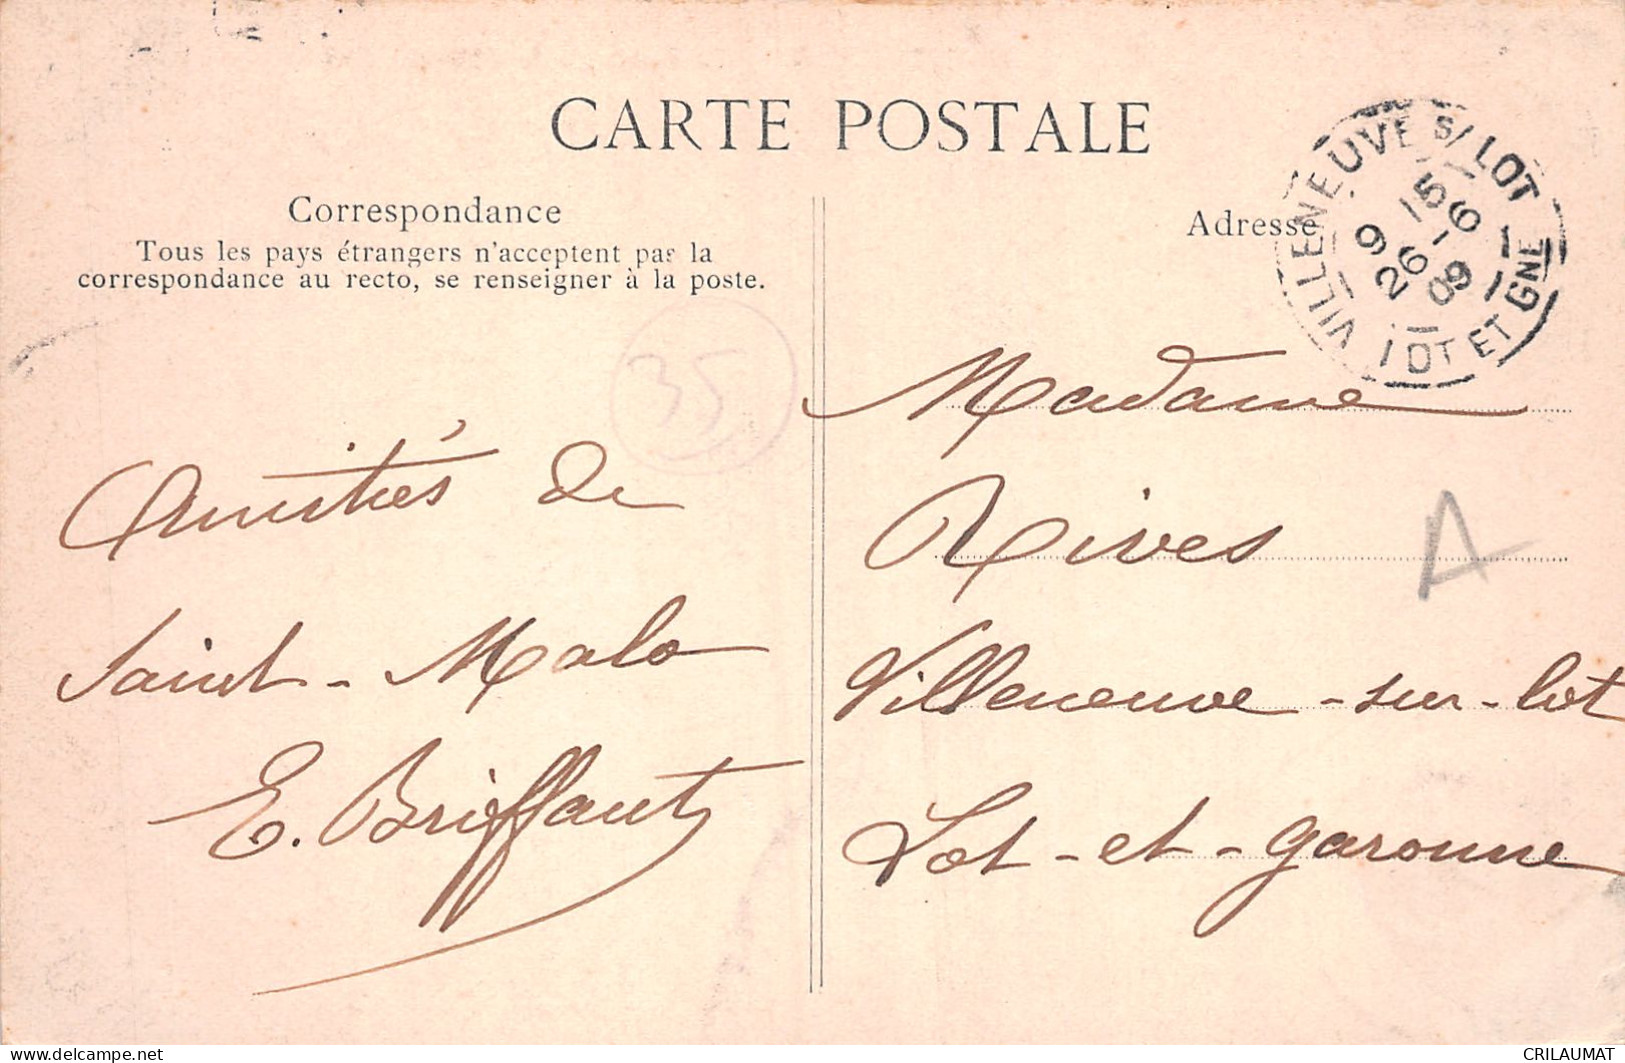 CARTE POSTALE
Correspondance
Tous les pays étrangers n'acceptent pas la
correspondance au recto, se renseigner à la poste.
Adresse
VILLENEUVE S/ LOT
9 15
26-6
09
LOT ET GNE
35
Amitiés de
Saint-Malo
E. Briffaut
Madame
Rives
A
Villeneuve-sur-Lot
Lot-et-garonne
delcampe.net
CRILAUMAT